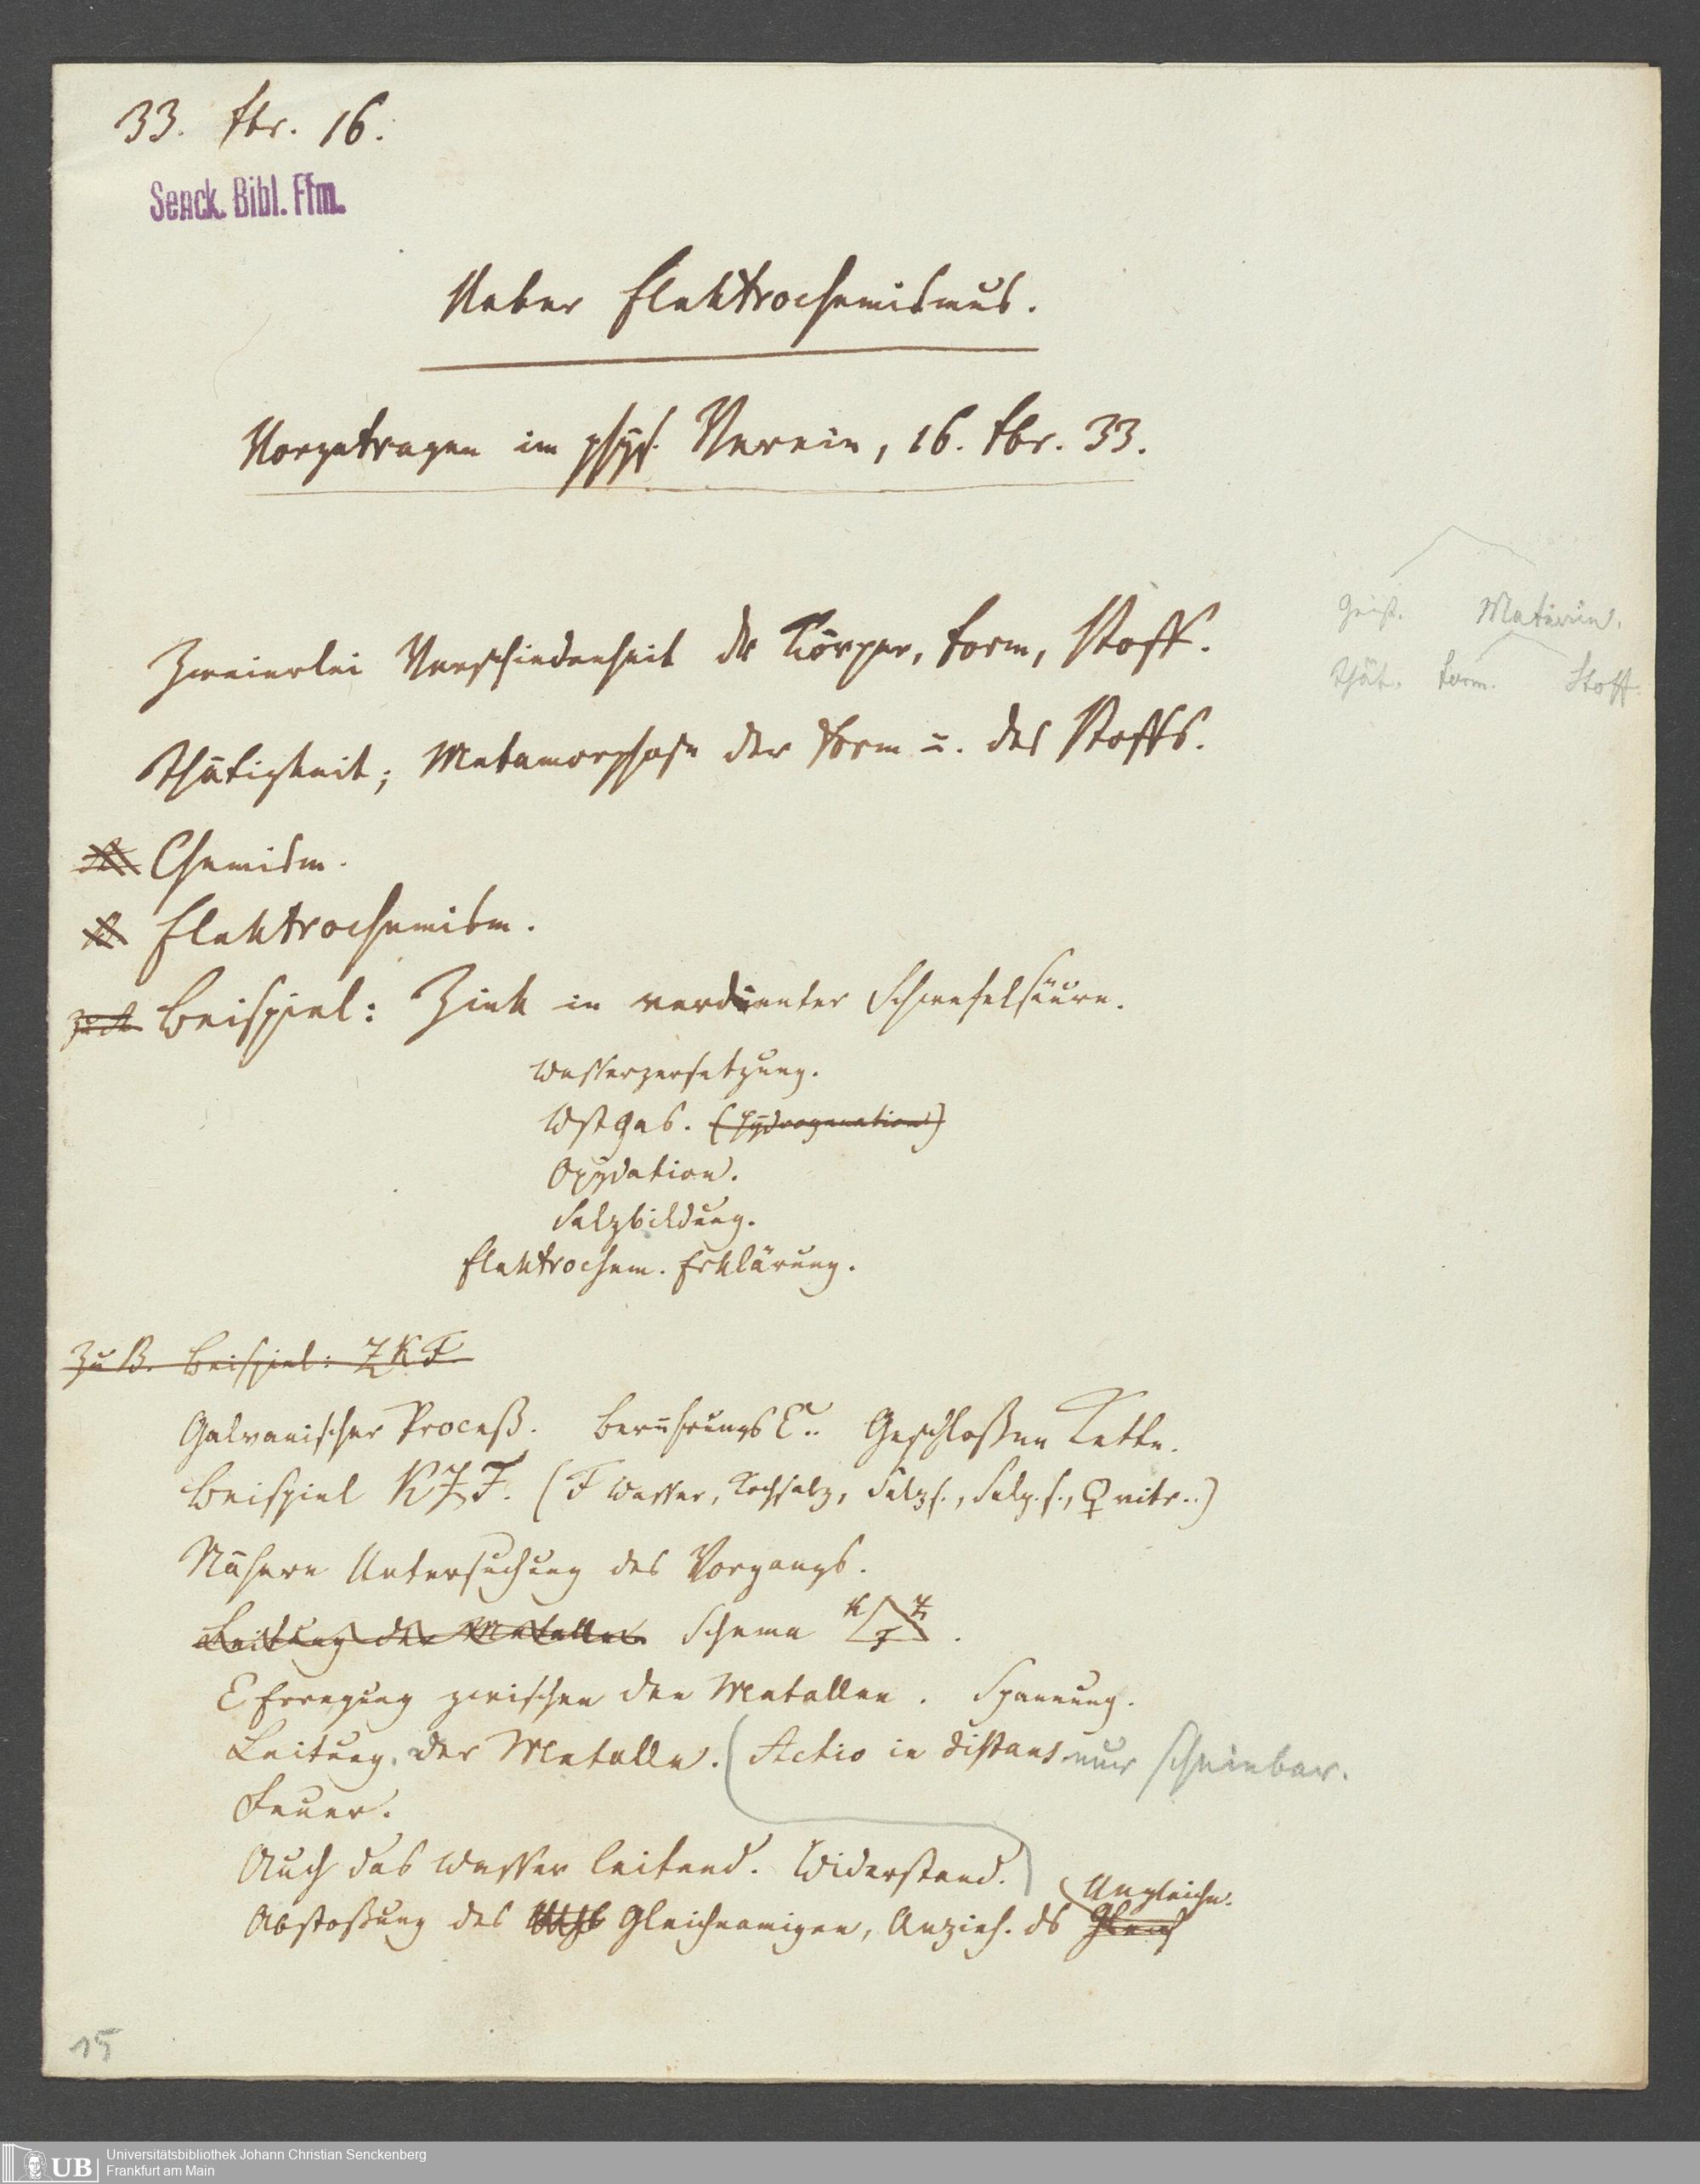 33. Fbr. 16.
Senck. Bibl. Ffm.
Ueber Elektrochemismus.
Vorgetragen im phys. Verein, 16. Fbr. 33.
Geist. Materie.
Thät. Form. Stoff.
Zweierlei Verschiedenheit der Körper, Form, Stoff.
Thätigkeit; Metamorphose der Form u. des Stoffs.
Chemism.
Elektrochemism.
Beispiel: Zink in verdünnter Schwefelsäure.
Wasserzersetzung.
WstGas. (Hydrogenation)
Oxydation.
Salzbildung.
Elektrochem. Erklärung.
Zu B. Beispiel: Z K F
Galvanischer Proceß. Berührungs E.. Geschloßene Kette.
Beispiel K Z F. (F Wasser, Kochsalz, Salzs., Salp. s., ☿ nitr..)
Nähere Untersuchung des Vorgangs.
Leitung der Metalle. Schema K Z F.
E Erregung zwischen den Metallen. Spannung.
Leitung der Metalle. (Actio in distans nur scheinbar.
Feuer.
Auch das Wasser leitend. Widerstand.)
Abstoßung des Gleichnamigen, Anzieh. ds Gleich Ungleichn.
15
UB Universitätsbibliothek Johann Christian Senckenberg
Frankfurt am Main